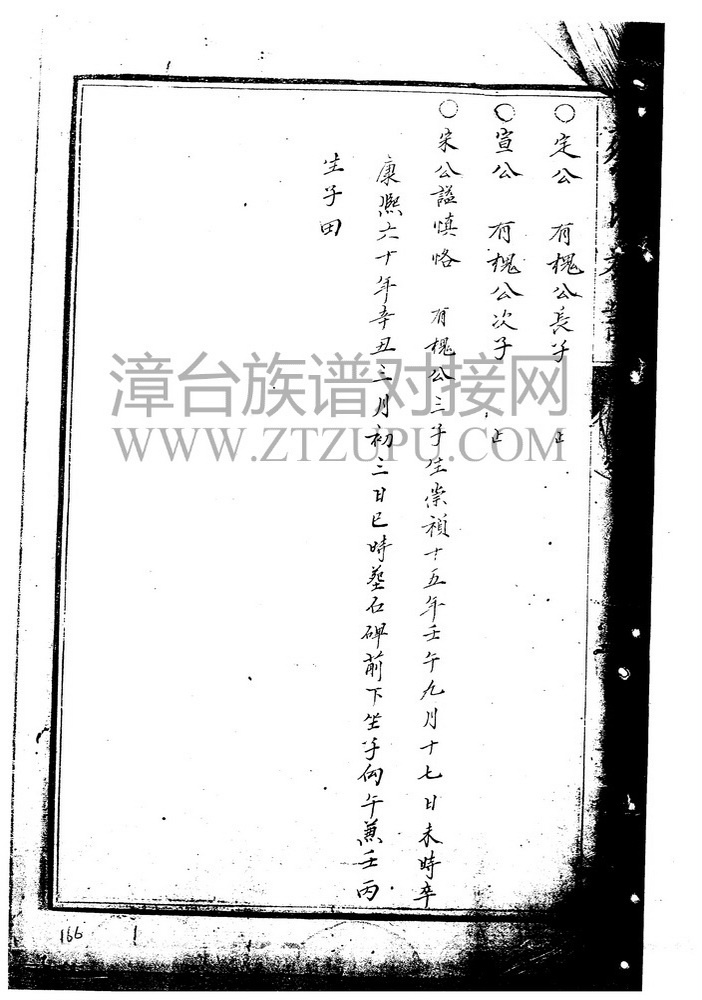 ○定公 有槐公長子 止
○宣公 有槐公次子 止
○宋公謚慎恪 有槐公三子生崇禎十五年壬午九月十七日未時卒
康熙六十年辛丑三月初三日巳時塟石碑前下坐子向午兼壬丙
生子田
漳台族谱对接网
WWW.ZTZUPU.COM
166